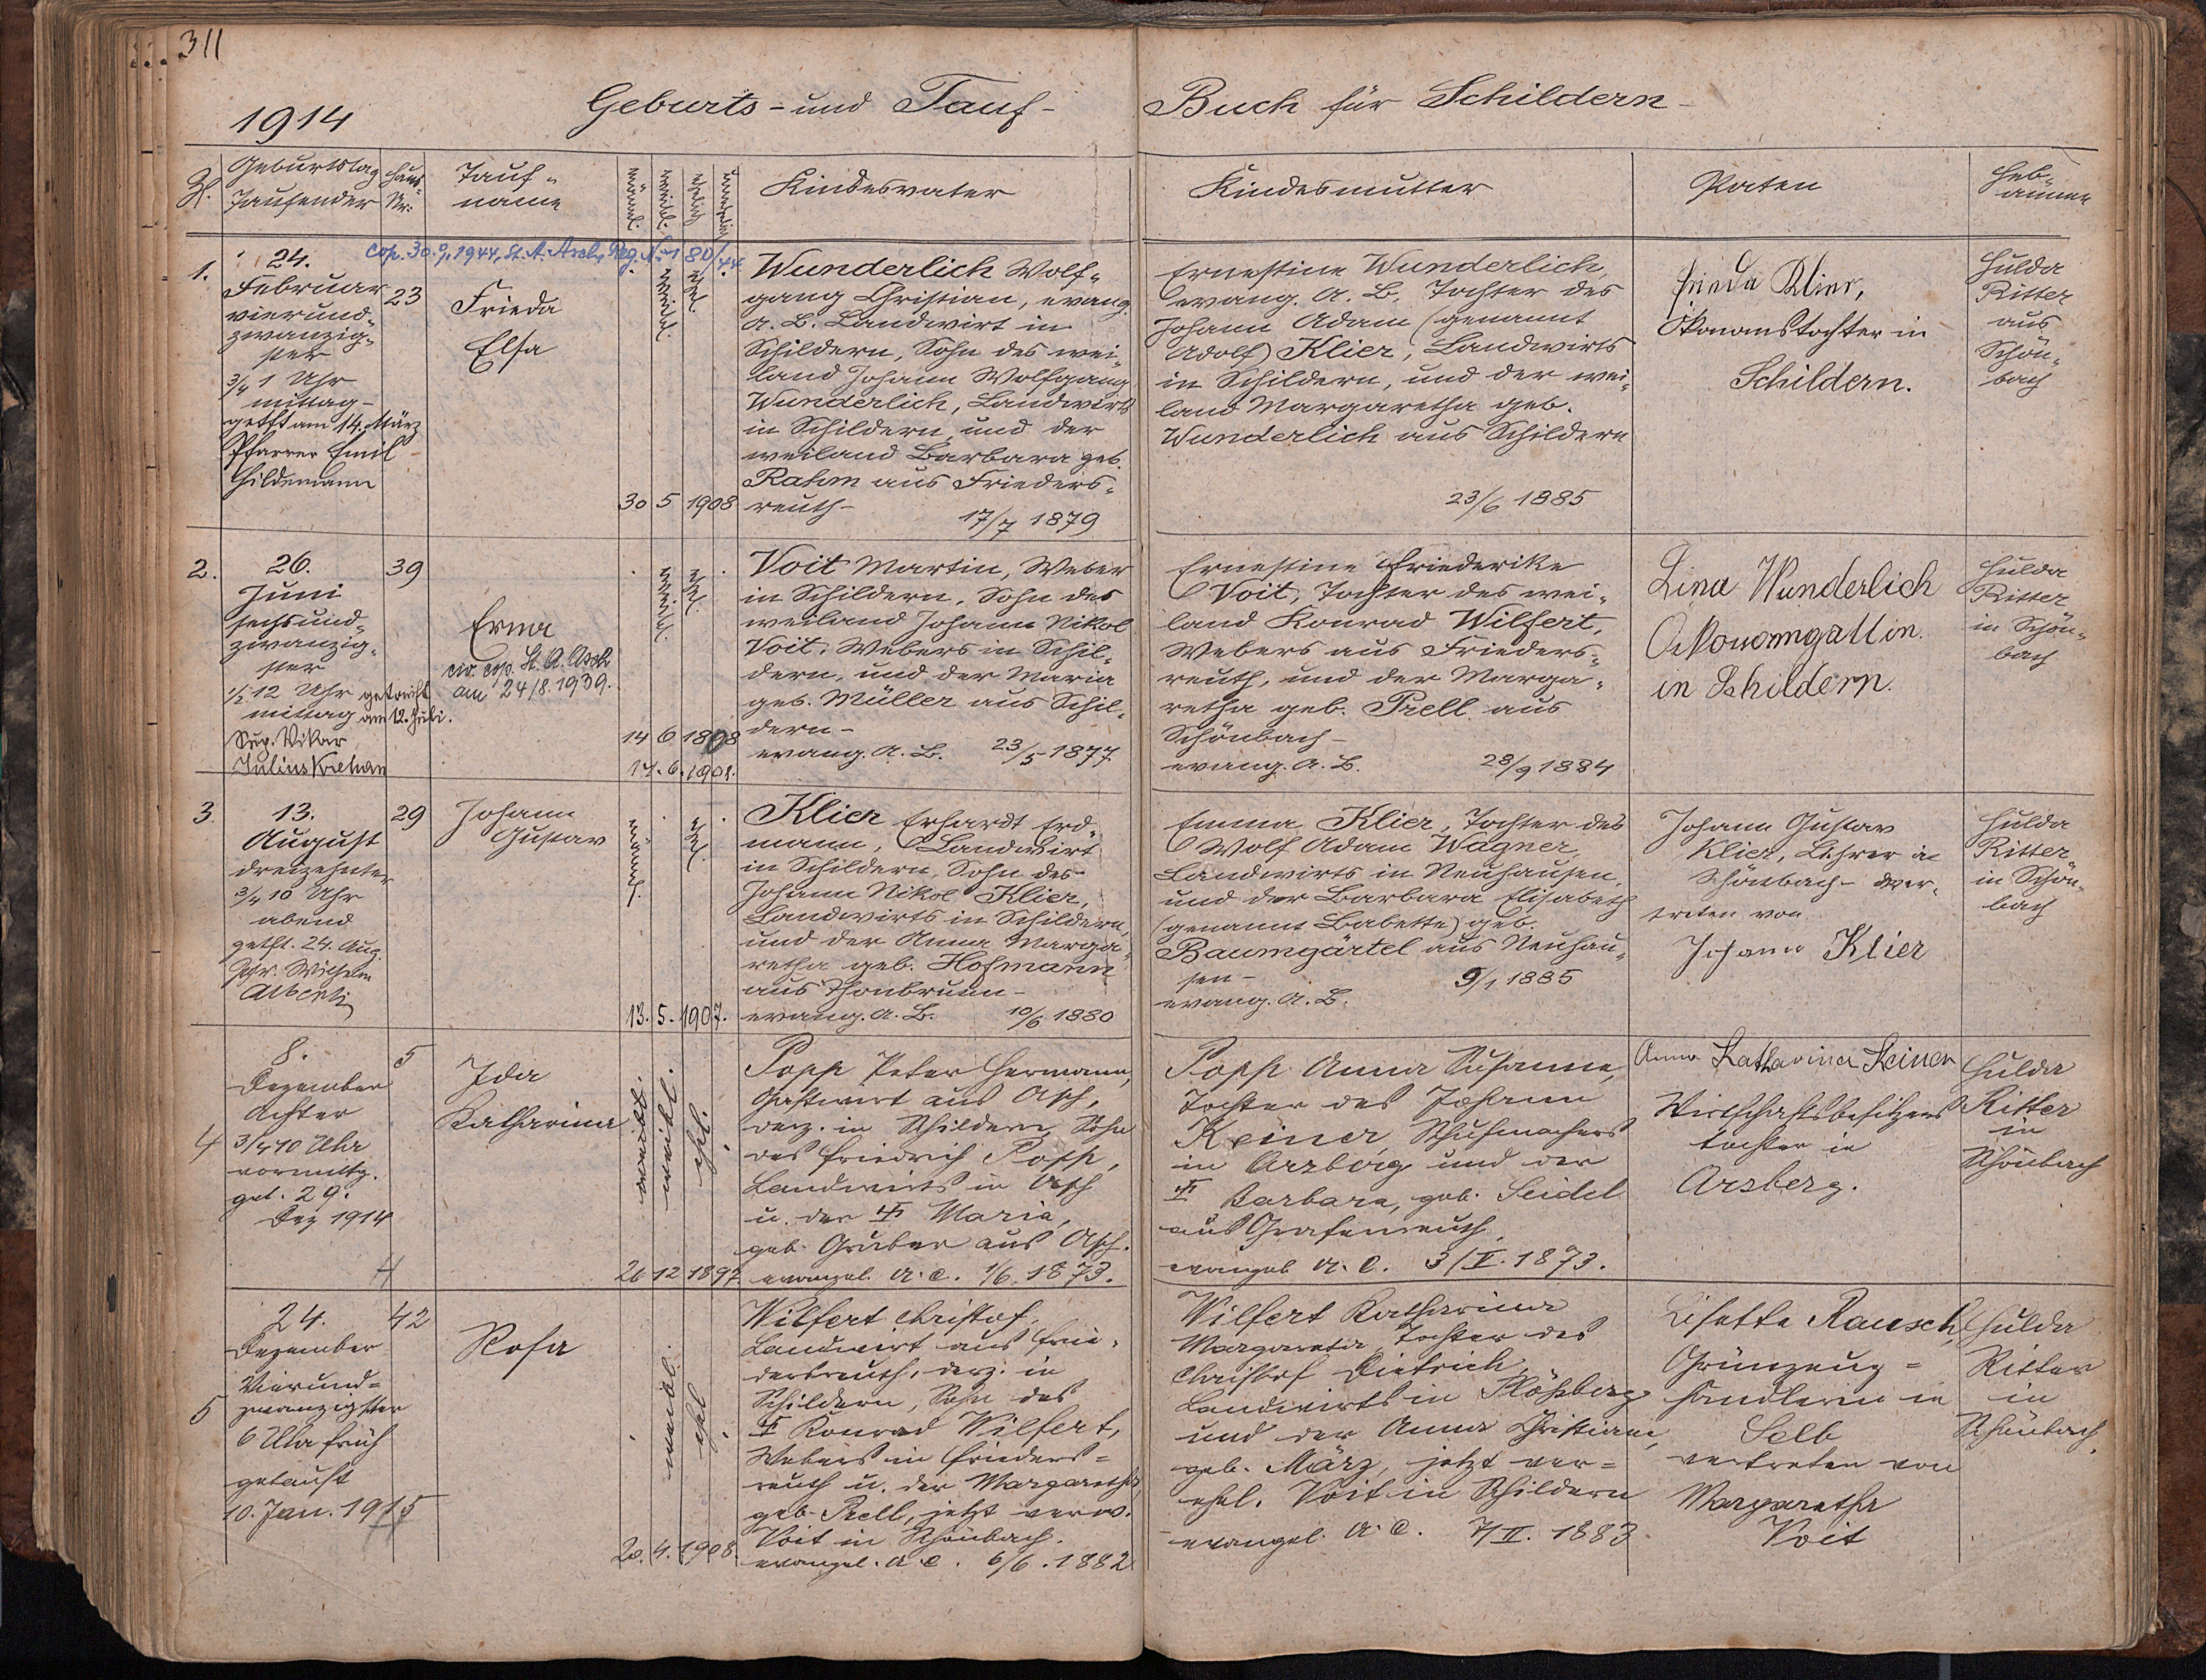 311
1914
Geburts- und Tauf-
Buch für Schildern-
Zl.
Geburtstag
Taufender
Haus-
Nr:
Tauf-
name
männl.
weibl.
ehelich
unehelich
Kindesvater
Kindesmutter
Paten
Heb-
amme
cop. 30./9. 1944, St. A. Asch, Reg. Nr. 180/44
1.
24.
Februar
vierund-
zwanzig-
ster
3/4 1 Uhr
mittag-
getft am 14. März
Pfarrer Emil
Hildemann
23
Frieda
Elsa
weibl.
ehel.
30 5 1908
Wunderlich Wolf-
gang Christian, evang.
A. B. Landwirt in
Schildern, Sohn des wei-
land Johann Wolfgang
Wunderlich, Landwirts
in Schildern und der
weiland Barbara geb.
Rahm aus Frieders-
reuth-
17/7 1879
Ernestine Wunderlich,
evang. A. B. Tochter des
Johann Adam (genannt
Adolf) Klier, Landwirts
in Schildern, und der wei-
land Margaretha geb.
Wunderlich aus Schildern
23/6 1885
Frieda Klier,
Ökonomstochter in
Schildern.
Hulda
Ritter
aus
Schön-
bach
2.
26.
Juni
sechsund-
zwanzig-
ster
1/2 12 Uhr
mittag
getauft
am 12. Juli.
Sup. Vikar
Julius Krehan
39
Erna
civ. cop. St. A. Asch
am 24/8. 1939.
weibl.
ehel.
14 6 1808
14. 6. 1908.
Voit Martin, Weber
in Schildern, Sohn des
weiland Johann Nikol
Voit, Webers in Schil-
dern, und der Maria
geb. Müller aus Schil-
dern-
evang. A. B. 23/5 1877
Ernestine Friederike
Voit, Tochter des wei-
land Konrad Wilfert,
Webers aus Frieders-
reuth, und der Marga-
retha geb. Prell aus
Schönbach-
evang. A. B. 28/9 1884
Lina Wunderlich
Ökonomgattin.
in Schildern.
Hulda
Ritter
in Schön-
bach
3.
13.
August
dreizehnter
3/4 10 Uhr
abend
getft. 24. Aug.
Pfr. Wilhelm
Alberti
29
Johann
Gustav
männl.
ehel.
13. 5. 1907.
Klier Erhardt Erd-
mann, Landwirt
in Schildern, Sohn des
Johann Nikol Klier,
Landwirts in Schildern,
und der Anna Marga-
retha geb. Hofmann
aus Thonbrunn-
evang. A. B. 10/6 1880
Emma Klier, Tochter des
Wolf Adam Wagner,
Landwirts in Neuhausen,
und der Barbara Elisabeth
(genannt Babette) geb.
Baumgärtel aus Neuhau-
sen-
evang. A. B. 9/1 1885
Johann Gustav
Klier, Lehrer in
Schönbach- ver-
treten von
Johann Klier
Hulda
Ritter
in Schön-
bach
4
8.
Dezember
Achter
3/4 10 Uhr
vormittg.
get. 29.
Dez 1914
5
Ida
Katharina
weibl.
ehel.
26 12 1897
Popp Peter Hermann,
Gastwirt aus Asch,
derz. in Schildern, Sohn
des Friedrich Popp,
Landwirts in Asch
u. der † Maria,
geb. Gruber aus Asch.
evangel. A. C. 1/6. 1873.
Popp Anna Susanna,
Tochter des Johann
Keiner Schuhmachers
in Arzberg und der
† Barbara, geb. Seidel
aus Grafenreuth.
evangel A. C. 3/V. 1873.
Anna Katharina Keiner
Wirtschaftsbesitzers
tochter in
Arzberg.
Hulda
Ritter
in
Schönbach
5
24.
Dezember
Vierund=
zwanzigster
6 Uhr früh
getauft
10. Jan. 1915
42
Rosa
weibl.
ehel
20. 4. 1908.
Wilfert Christof,
Landwirt aus Frie-
dersreuth, derz. in
Schildern, Sohn des
† Konrad Wilfert,
Webers in Frieders=
reuth u. der Margaretha
geb. Prell, jetzt verw.
Voit in Schönbach.
evangel. A. C. 6/6. 1882
Wilfert Katharina
Margareta, Tochter des
Christof Dietrich,
Landwirts in Plößberg
und der Anna Christiane,
geb. März, jetzt ver=
ehel. Voit in Schildern
evangel. A. C. 7/II. 1883
Lisette Rausch,
Grünzeug=
händlerin in
Selb
vertreten von
Margaretha
Voit
Hulda
Ritter
in
Schönbach.